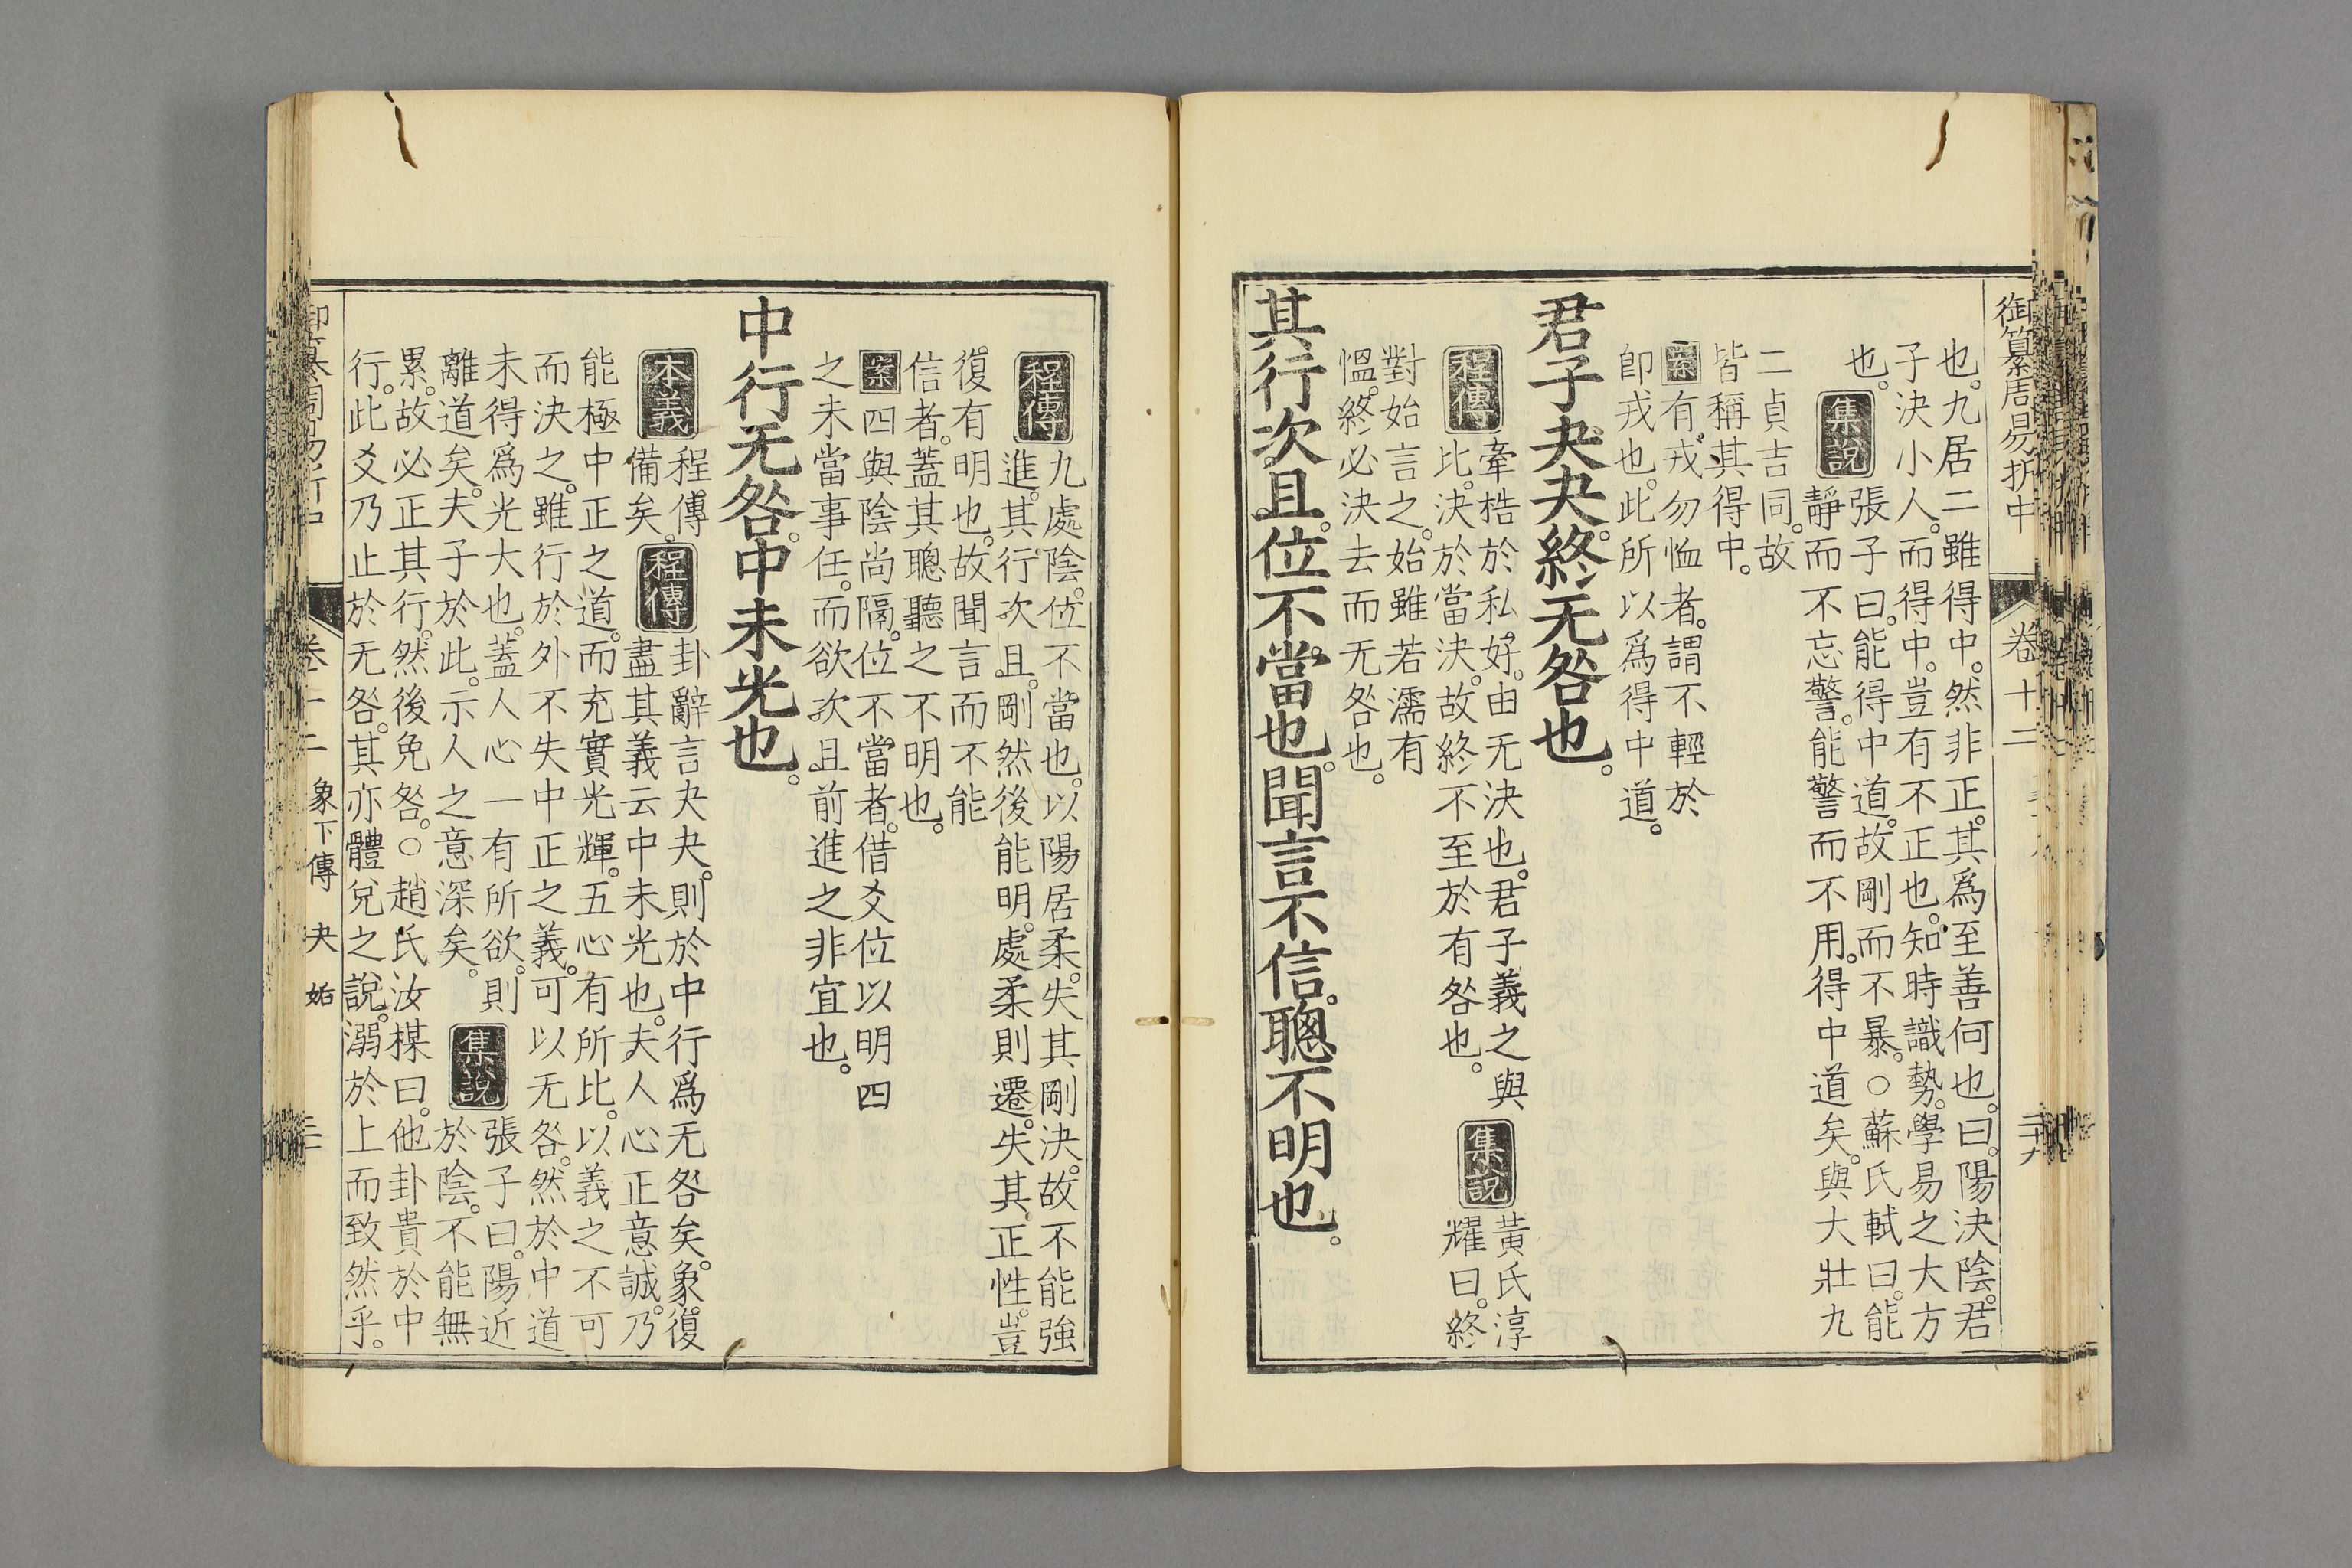 御纂周易折中
卷十二
也。九居二雖得中。然非正。其為至善何也。曰。陽決陰。君
子決小人。而得中。豈有不正也。知時識勢。學易之大方
也。
集說
張子曰。能得中道。故剛而不暴。○蘇氏軾曰。能
靜而不忘警。能警而不用。得中道矣。與大壯九
二貞吉同。故
皆稱其得中。
案
有戎勿恤者。謂不輕於
卽戎也。此所以爲得中道。
君子夬夬。終无咎也。
程傳
牽梏於私好。由无決也。君子義之與
比。決於當決。故終不至於有咎也。
集說
黃氏淳
耀曰。終
對始言之。始雖若濡有
慍。終必決去而无咎也。
其行次且。位不當也。聞言不信。聰不明也。
程傳
九處陰。位不當也。以陽居柔。失其剛決。故不能強
進。其行次且。剛然後能明。處柔則遷。失其正性。豈
復有明也。故聞言而不能
信者。蓋其聰聽之不明也。
案
四與陰尚隔。位不當者。借爻位以明四
之未當事任。而欲次且前進之非宜也。
中行无咎。中未光也。
本義
程傳
備矣。
程傳
卦辭言夬夬。則於中行爲无咎矣。象復
盡其義云中未光也。夫人心正意誠。乃
能極中正之道。而充實光輝。五心有所比。以義之不可
而決之。雖行於外不失中正之義。可以无咎。然於中道
未得爲光大也。蓋人心一有所欲。則
離道矣。夫子於此。示人之意深矣。
集說
張子曰。陽近
於陰。不能無
累。故必正其行。然後免咎。○趙氏汝楳曰。他卦貴於中
行。此爻乃止於无咎。其亦體兌之說。溺於上而致然乎。
象下傳
夬
姤